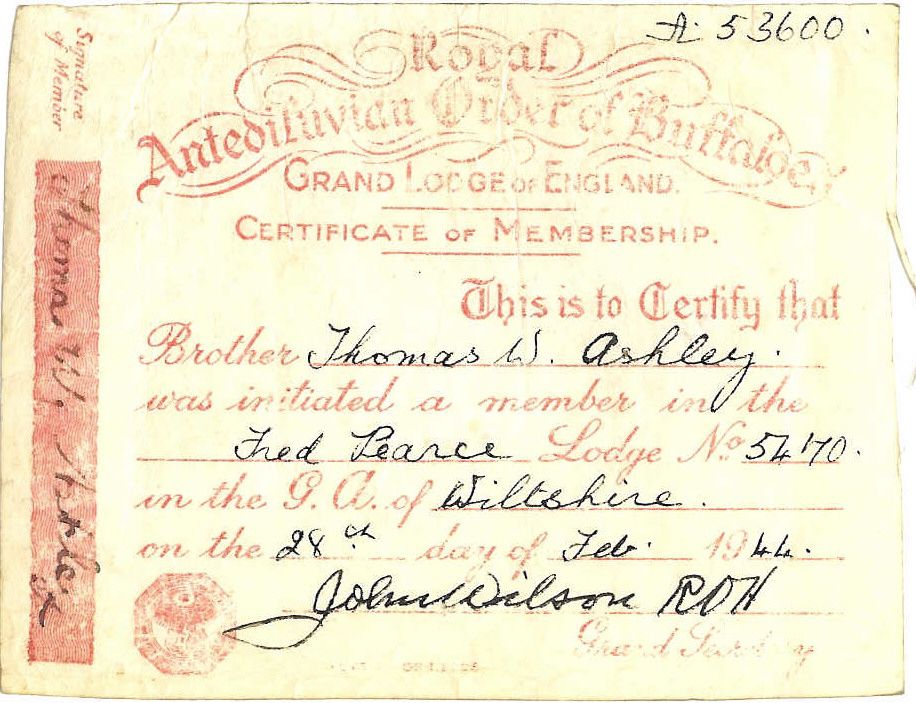 A 53600.
Royal
Antediluvian Order of Buffaloes
GRAND LODGE OF ENGLAND.
CERTIFICATE OF MEMBERSHIP.
This is to Certify that
Brother Thomas W. Ashley.
was initiated a member in the
Fred Pearce Lodge No 5470.
in the G. A. of Wiltshire.
on the 28th day of Feb. 1944.
John Wilson ROH
Grand Secretary
Signature
of Member
Thomas W. Ashley